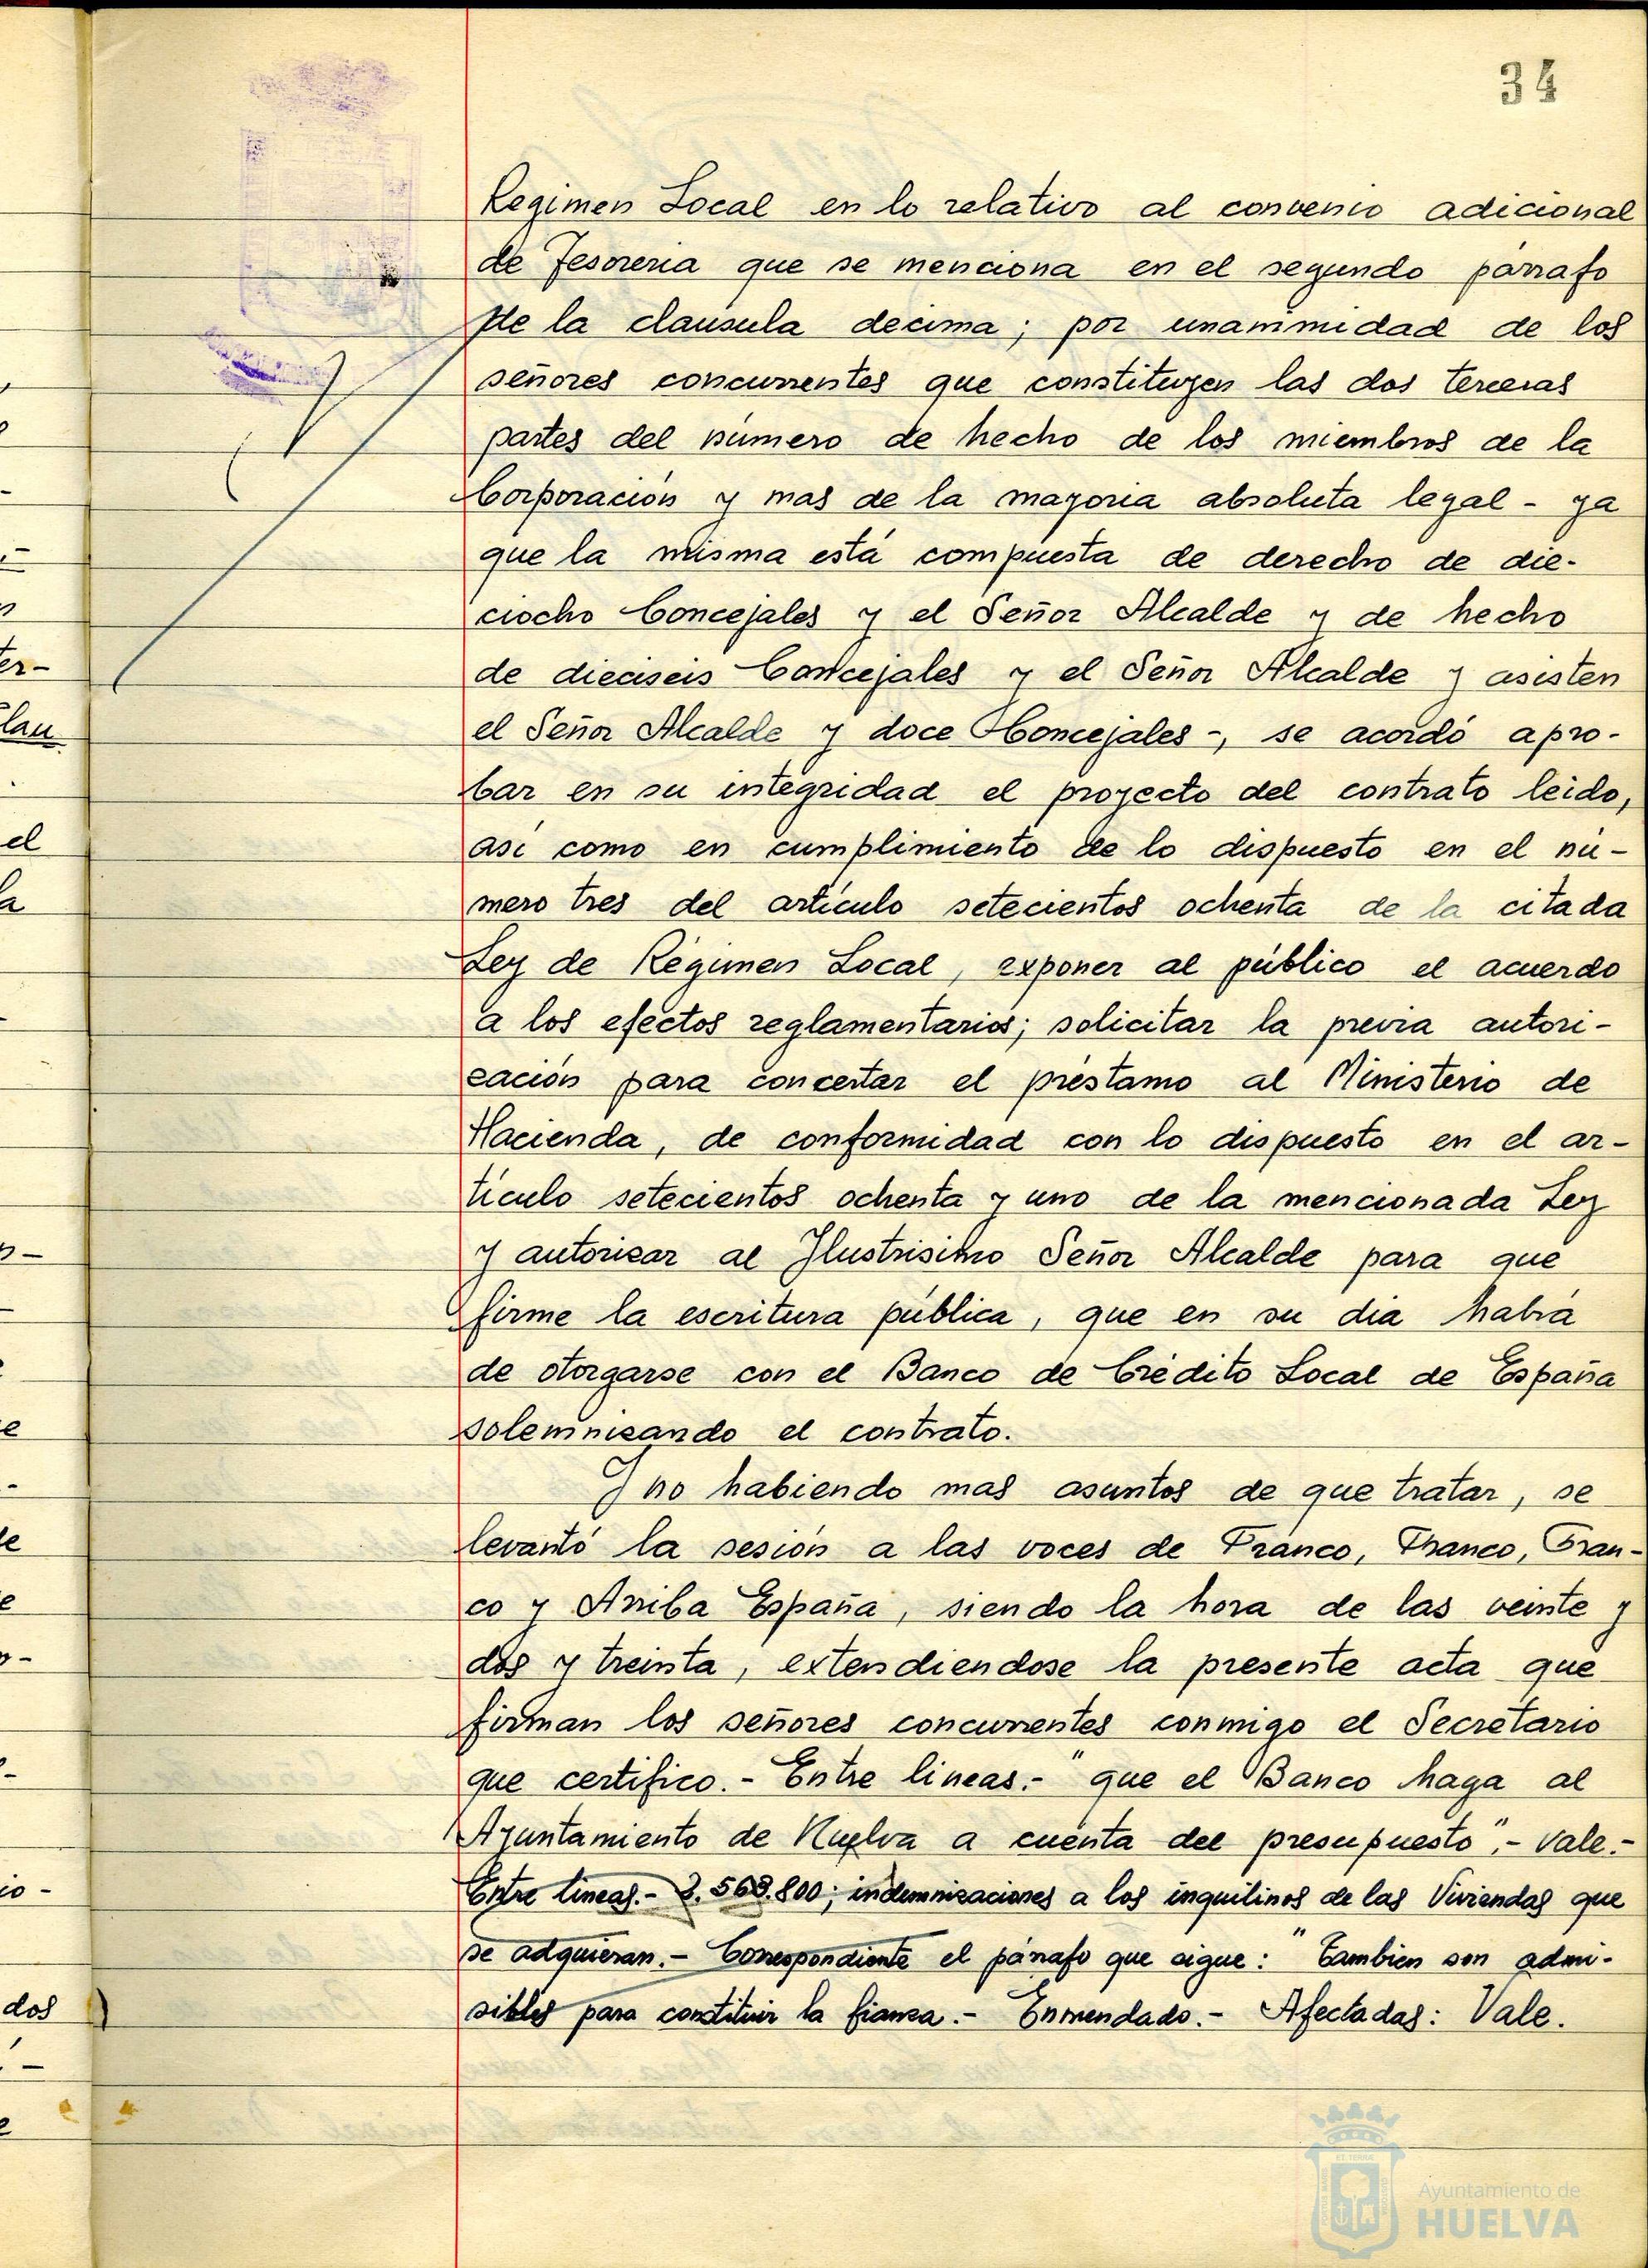 34
Regimen Local en lo relativo al convenio adicional
de Tesoreria que se menciona en el segundo párrafo
de la clausula decima; por unanimidad de los
señores concurrentes que constituyen las dos terceras
partes del número de hecho de los miembros de la
Corporación y mas de la mayoria absoluta legal - ya
que la misma está compuesta de derecho de die-
ciocho Concejales y el Señor Alcalde y de hecho
de dieciseis Concejales y el Señor Alcalde y asisten
el Señor Alcalde y doce Concejales -, se acordó apro-
bar en su integridad el proyecto del contrato leido,
asi como en cumplimiento de lo dispuesto en el nú-
mero tres del artículo setecientos ochenta de la citada
Ley de Régimen Local, exponer al público el acuerdo
a los efectos reglamentarios; solicitar la previa autori-
zación para concertar el préstamo al Ministerio de
Hacienda, de conformidad con lo dispuesto en el ar-
tículo setecientos ochenta y uno de la mencionada Ley
y autorizar al Ilustrisimo Señor Alcalde para que
firme la escritura pública, que en su dia habrá
de otorgarse con el Banco de Crédito Local de España
solemnizando el contrato.
Y no habiendo mas asuntos de que tratar, se
levantó la sesión a las voces de Franco, Franco, Fran-
co y Arriba España, siendo la hora de las veinte y
dos y treinta, extendiendose la presente acta que
firman los señores concurrentes conmigo el Secretario
que certifico.- Entre lineas.- "que el Banco haga al
Ayuntamiento de Huelva a cuenta del presupuesto".- Vale.-
Entre lineas.- 568.800; indemnizaciones a los inquilinos de las Viviendas que
se adquieran.- Correspondiente el párrafo que sigue: "Tambien son admi-
sibles para constituir la fianza.- Enmendado.- Afectadas: Vale.
Ayuntamiento de
HUELVA